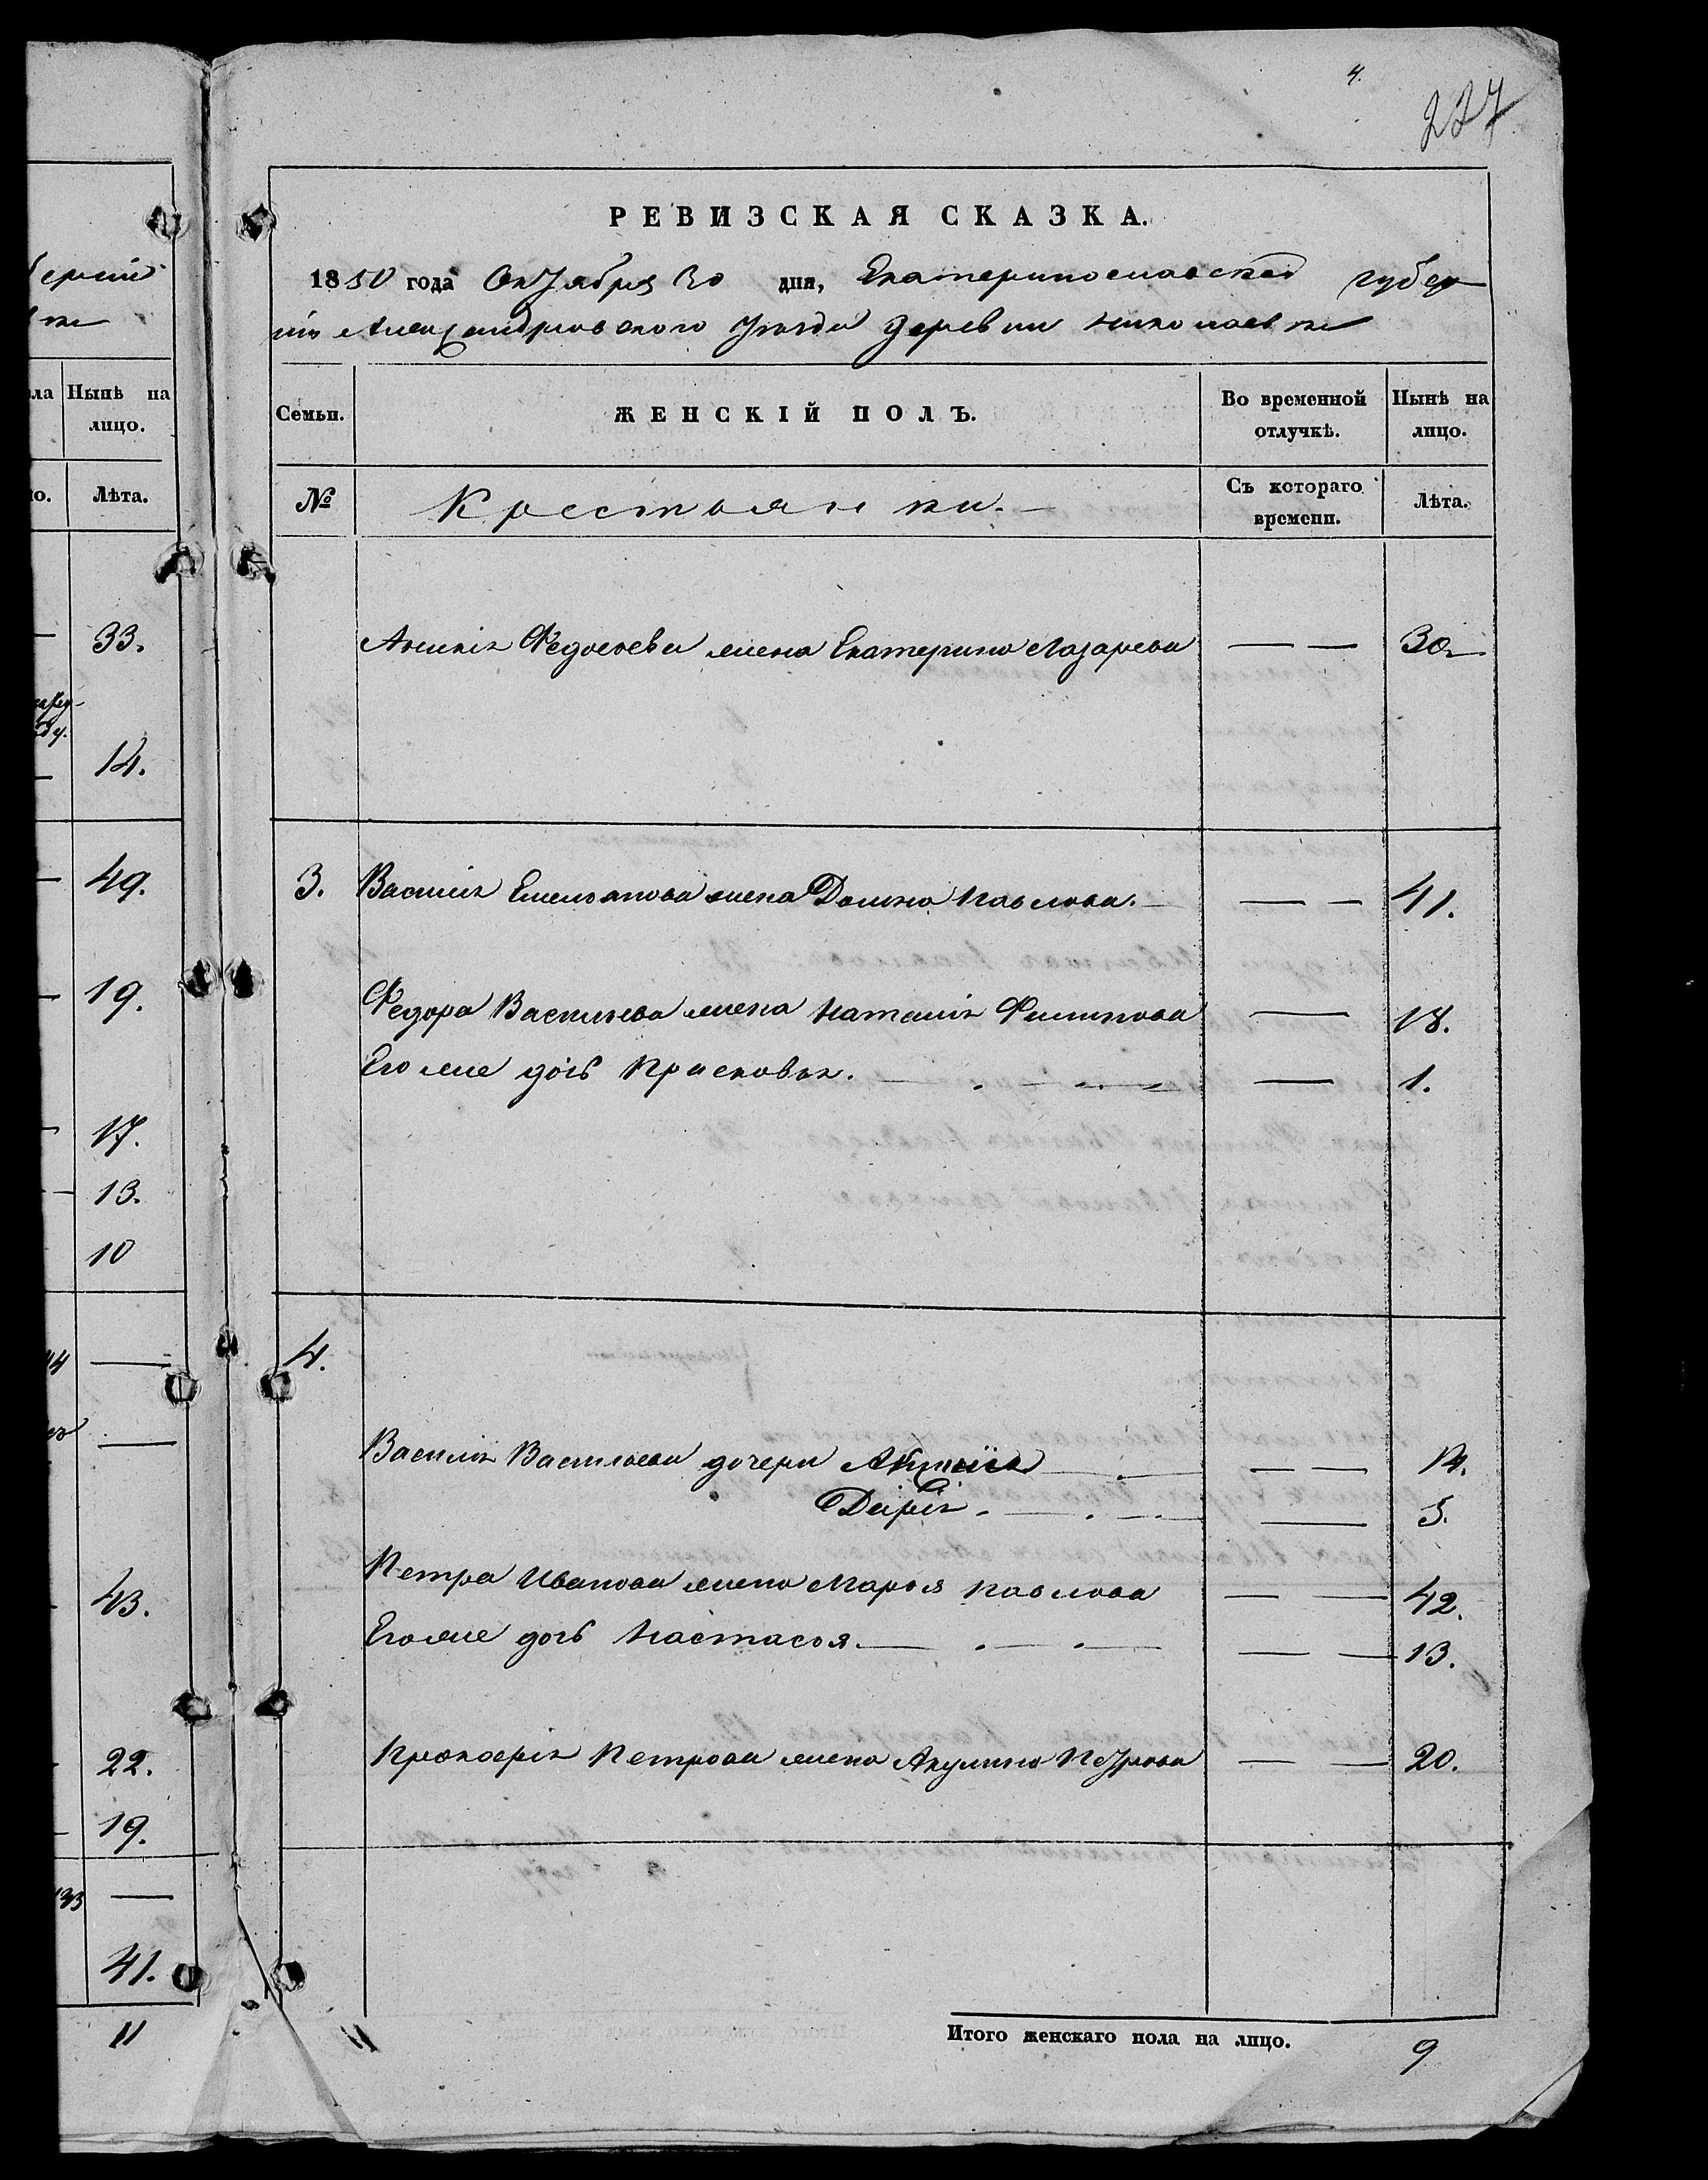 4.
227
РЕВИЗСКАЯ СКАЗКА.
1850 года Октября 30 дня, Екатеринославской губер
ніи Александровского уезда деревни Николаевки
ла Нынѣ на лицо.
Лѣта.
33.
14.
49.
19.
17.
13.
10
43.
22.
19.
41.
11
Семьи. ЖЕНСКІЙ ПОЛЪ. Во временной отлучкѣ. Нынѣ на лицо.
№ Крестьянки. Съ котораго времени. Лѣта.
Федосеева жена Екатерина Лазарева — — 30
3. Василія Емельянова жена Домна Павлова. — — 41.
Федора Васильева жена Наталія Филипова — 18.
Его же дочь Прасковія. — 1.
4.
Василія Васильева дочери — — 14.
Дарія. — 5.
Петра Иванова жена Марья Павлова — — 42.
Его же дочь Настасья. — — 13.
Прокофія Петрова жена Акулина Петрова — — 20.
11
Итого женскаго пола на лицо. 9